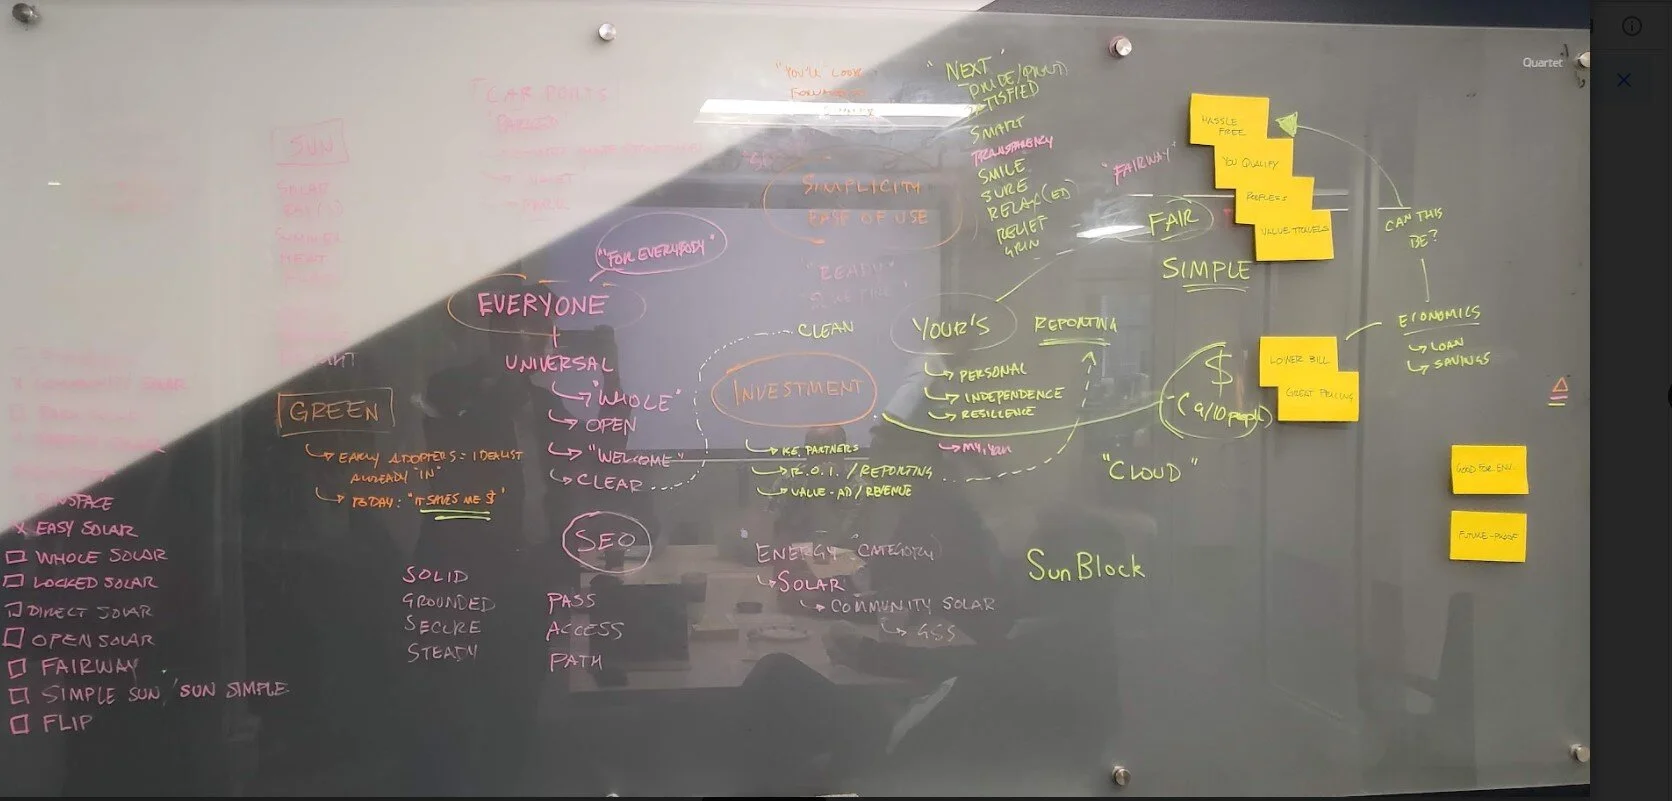 CAR PORTS
SUN
SOLAR
SUMMER
HEAT
COMMUNITY SOLAR
SUNSPACE
X EASY SOLAR
WHOLE SOLAR
LOCKED SOLAR
DIRECT SOLAR
OPEN SOLAR
FAIRWAY
SIMPLE SUN / SUN SIMPLE
FLIP
GREEN
EARLY ADOPTERS = IDEALIST
ALREADY "IN"
TODAY: "IT SAVES ME $"
"FOR EVERYBODY"
EVERYONE
UNIVERSAL
"WHOLE"
OPEN
"WELCOME"
CLEAR
SEO
SOLID
GROUNDED
SECURE
STEADY
PASS
ACCESS
PATH
"YOU'LL LOOK
FORWARD TO
SIMPLICITY
EASE OF USE
"READY"
CLEAN
INVESTMENT
I.E. PARTNERS
R.O.I. / REPORTING
VALUE-AD / REVENUE
ENERGY (CATEGORY)
SOLAR
COMMUNITY SOLAR
GSS
"NEXT"
PRIDE/(PROUD)
SATISFIED
SMART
TRANSPARENCY
SMILE
SURE
RELAX(ED)
RELIEF
GRIN
YOUR'S
PERSONAL
INDEPENDENCE
RESILIENCE
MY, YOU
REPORTING
"FAIRWAY"
FAIR
SIMPLE
$
(9/10 people)
"CLOUD"
SunBlock
HASSLE
FREE
YOU QUALIFY
ROOFLESS
VALUE TRAVELS
CAN THIS
BE?
ECONOMICS
LOAN
SAVINGS
LOWER BILL
GREAT PRICING
GOOD FOR ENV.
FUTURE-PROOF
Quartet